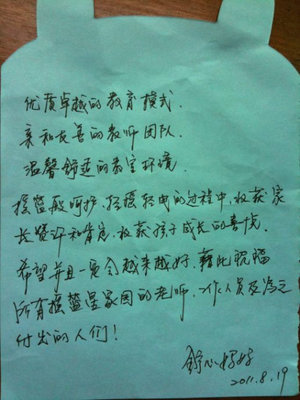 优质卓越的教育模式.
亲和友善的教师团队.
温馨舒适的教室环境.
摇篮般呵护.轻摇轻曳的过程中,收获家
长赞许和肯定,收获孩子成长的喜悦.
希望并且一定会越来越好.藉此祝福
所有摇篮屋家园的老师.工作人员及为之
付出的人们!
舒心妈妈
2011.8.19